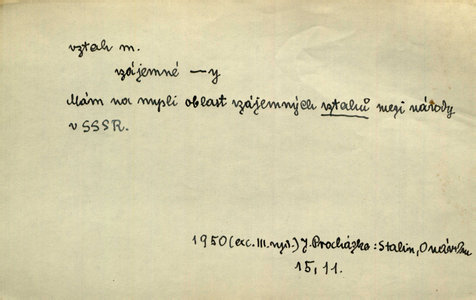 vztah m.
vzájemné —y
Mám na mysli oblast vzájemných vztahů mezi národy
v SSSR.
1950 (exc. III. vyd.) J. Procházka: Stalin, O
15, 11.